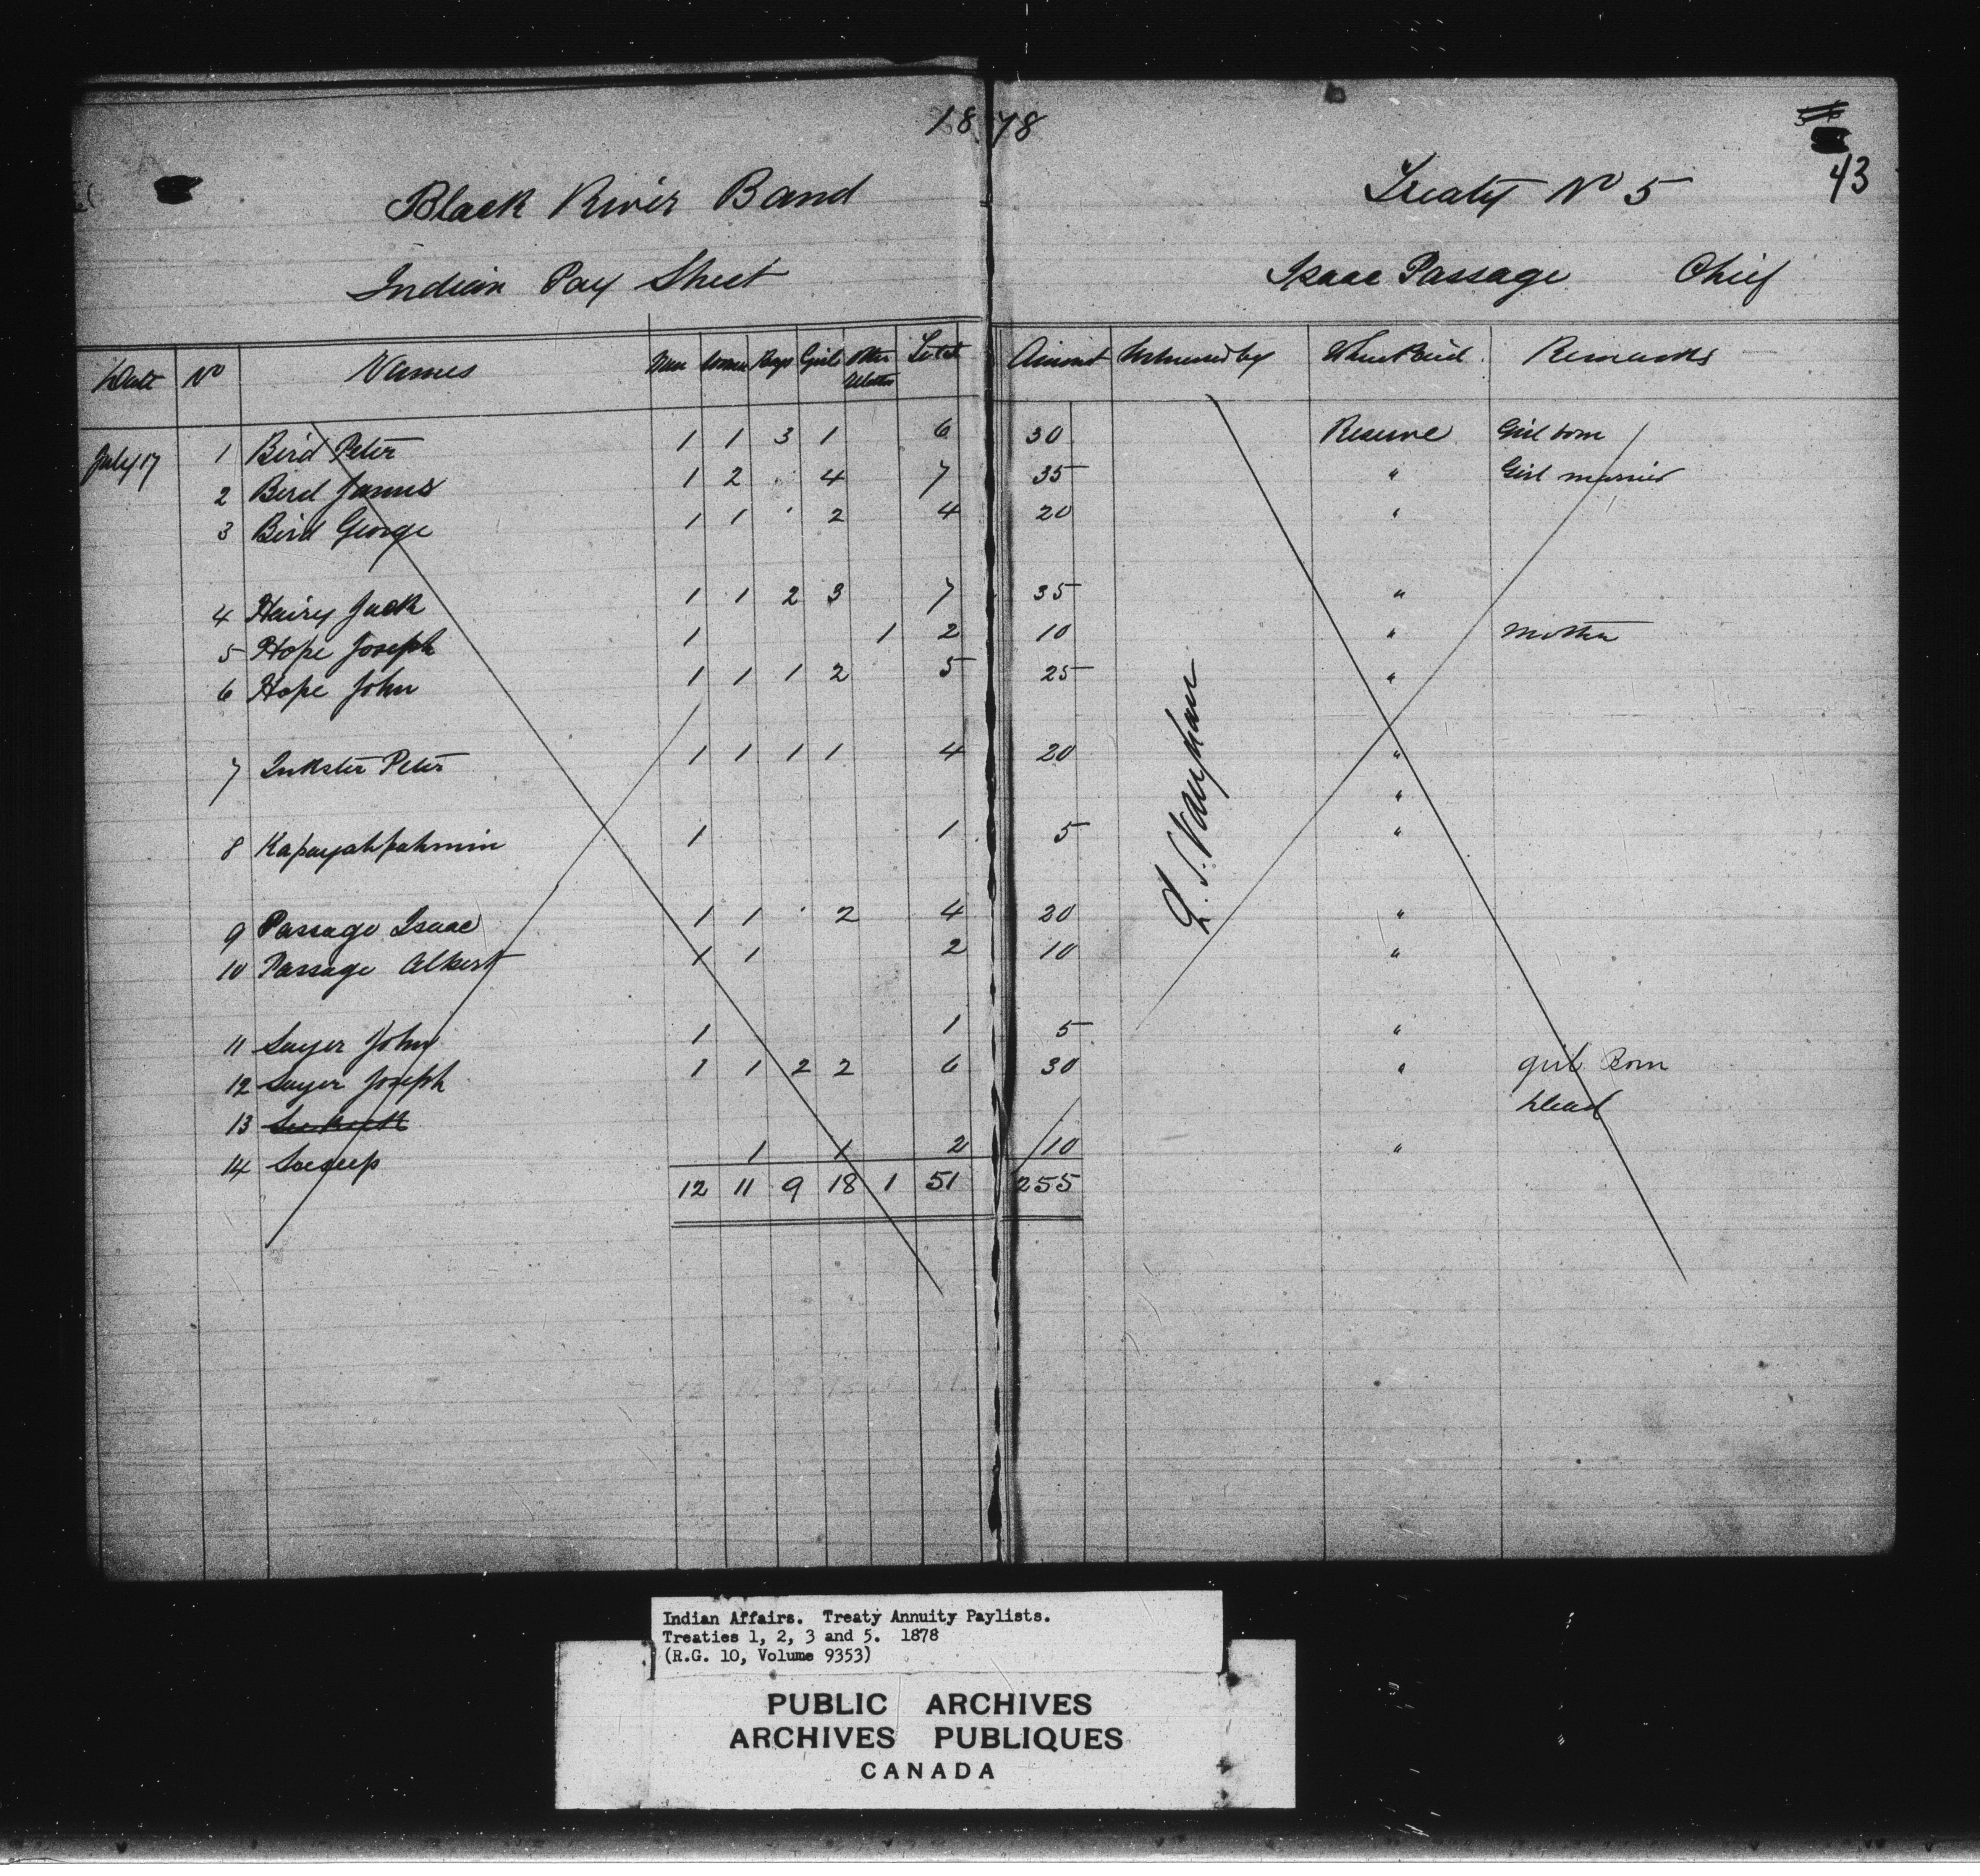 1878
43
Black River Band Treaty No 5
Indian Pay Sheet Isaac Passage Chief
Date No Names Men Women Boys Girls Other Relatives Total Amount Witnessed by Where Paid Remarks
July 17 1 Bird Peter 1 1 3 1 6 30 Reserve Girl born
2 Bird James 1 2 4 7 35 " Girl married
3 Bird George 1 1 2 4 20 "
4 Hairy Jack 1 1 2 3 7 35 "
5 Hope Joseph 1 1 2 10 " Mother
6 Hope John 1 1 1 2 5 25 "
7 Inkster Peter 1 1 1 1 4 20 "
"
8 Kapayahpahmin 1 1 5 "
9 Passage Isaac 1 1 2 4 20 "
10 Passage Albert 1 1 2 10 "
11 Sayer John 1 1 5 "
12 Sayer Joseph 1 1 2 2 6 30 " girl Born
13 dead
14 1 1 2 10 "
12 11 9 18 1 51 255
Indian Affairs. Treaty Annuity Paylists.
Treaties 1, 2, 3 and 5. 1878
(R.G. 10, Volume 9353)
PUBLIC ARCHIVES
ARCHIVES PUBLIQUES
CANADA